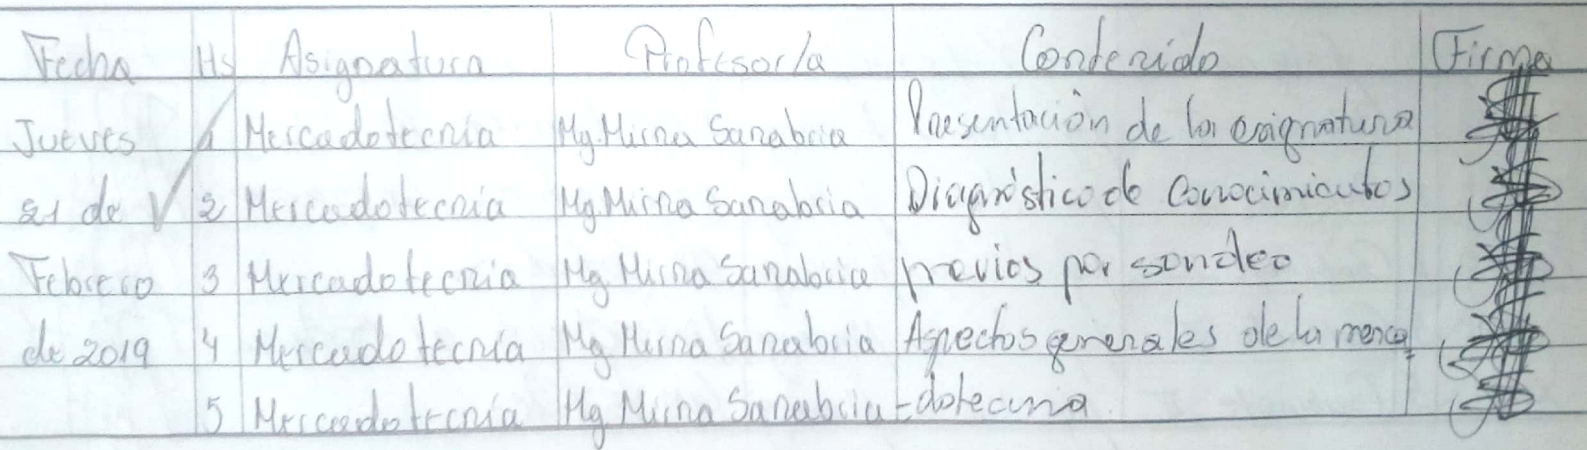 Fecha Hs Asignatura Profesor/a Contenido Firma
Jueves 1 Mercadotecnia Mg. Mirna Sanabria Presentación de la asignatura
21 de 2 Mercadotecnia Mg. Mirna Sanabria Diagnóstico de conocimientos
Febrero 3 Mercadotecnia Mg Mirna Sanabria previos por sondeo
de 2019 4 Mercadotecnia Mg Mirna Sanabria Aspectos generales de la merca
5 Mercadotecnia Mg Mirna Sanabria -dotecnia